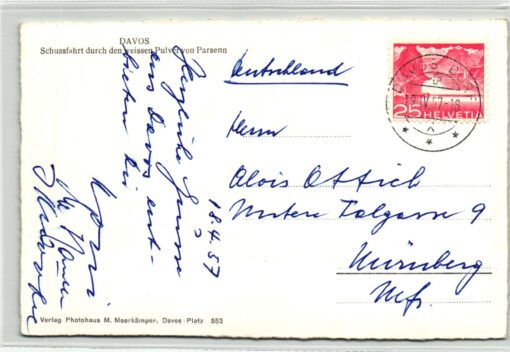 DAVOS
Schussfahrt durch den weissen Pulver von Parsenn
Herzliche Grüsse
aus Davos ent-
bieten Dir
18.4.57
Deutschland
Herrn
Alois Ottich
Untere Talgasse 9
Nürnberg
Mfr.
25 HELVETIA
DAVOS
Verlag Photohaus M. Meerkämper, Davos-Platz 553